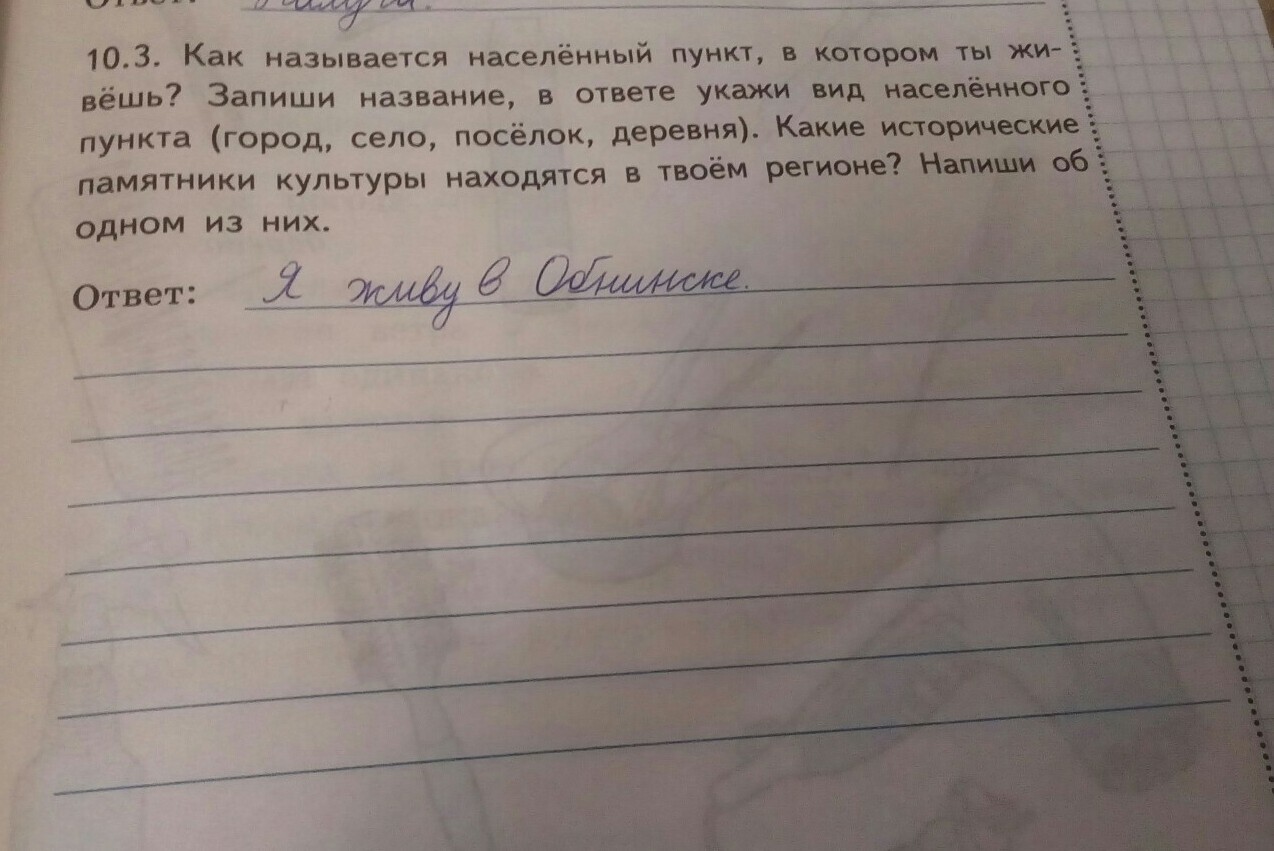 10.3. Как называется населённый пункт, в котором ты жи-
вёшь? Запиши название, в ответе укажи вид населённого
пункта (город, село, посёлок, деревня). Какие исторические
памятники культуры находятся в твоём регионе? Напиши об
одном из них.
Ответ: Я живу в Обнинске.